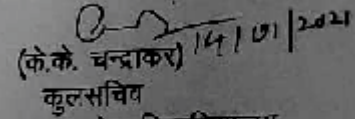 14/01/2021
(के.के. चन्द्राकर)
कुलसचिव